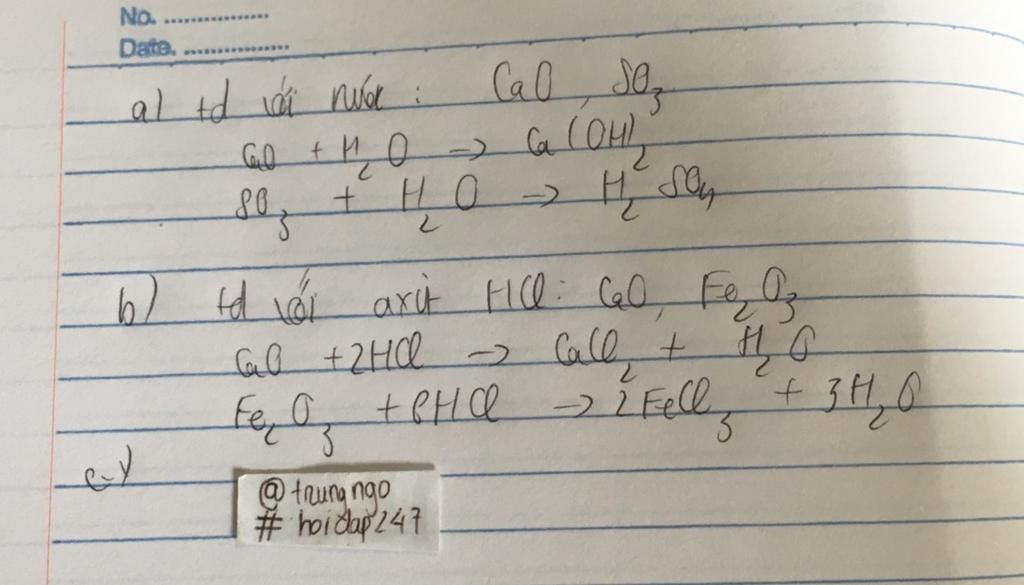 No. ................
Date. ................
a) td với nước : CaO , SO₃
CaO + H₂O → Ca(OH)₂
SO₃ + H₂O → H₂SO₄
b) td với axit HCl : CaO, Fe₂O₃
CaO + 2HCl → CaCl₂ + H₂O
Fe₂O₃ + 6HCl → 2FeCl₃ + 3H₂O
@trungngo
# hoidap247